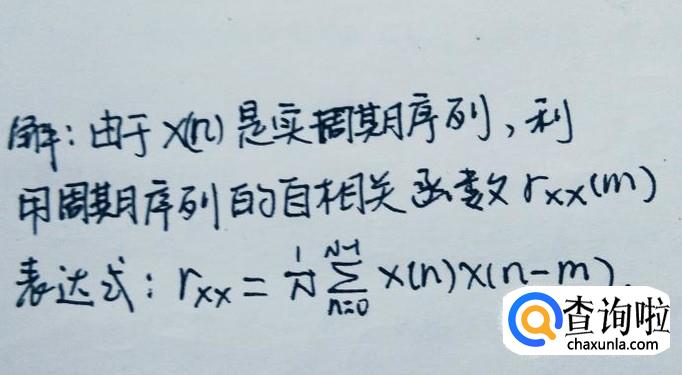 解:由于x(n)是实周期序列,利
用周期序列的自相关函数rxx(m)
表达式:rxx=1/N∑(n=0,N-1)x(n)x(n-m).
查询啦
chaxunla.com